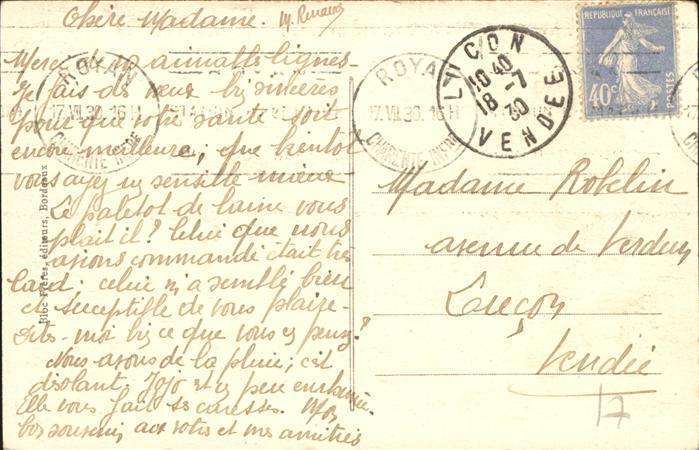 Chère Madame.
Merci de vos aimables lignes.
Je fais des vœux bien sincères
pour que votre santé soit
encore meilleure, que bientôt
vous ayez un sensible mieux
Ce paletot de laine vous
plaît il? Celui que nous
avions commandé était très
laid; celui ci m'a semblé bien
susceptible de vous plaire.
Dites-moi bien ce que vous en pensez?
Nous avons de la pluie; c'est
désolant. Jojo est un peu enrhumée.
Elle vous fait ses caresses. Mon
bon souvenir aux vôtres et mes amitiés
M. Renaud
Bloc Frères, éditeurs, Bordeaux
ROYAN
17.VII.30.16H
CHARENTE INFRE
ROYAN
17.VII.30.16H
CHARENTE INFRE
LUÇON
10 40
18-7
30
VENDÉE
REPUBLIQUE FRANÇAISE
40c
Madame Robelin
avenue de Verdun
Luçon
Vendée
17